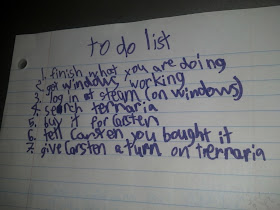 to do list
1. finish what you are doing
2. get windows working
3. log in at steam (on windows)
4. search ternaria
5. buy it for Carsten
6. tell Carsten you bought it
7. give Carsten a turn on trernaria